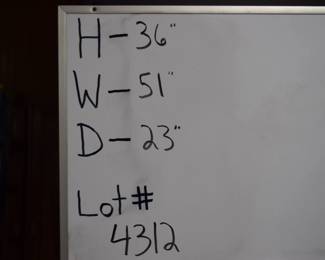 H-36"
W-51"
D-23"
Lot#
4312